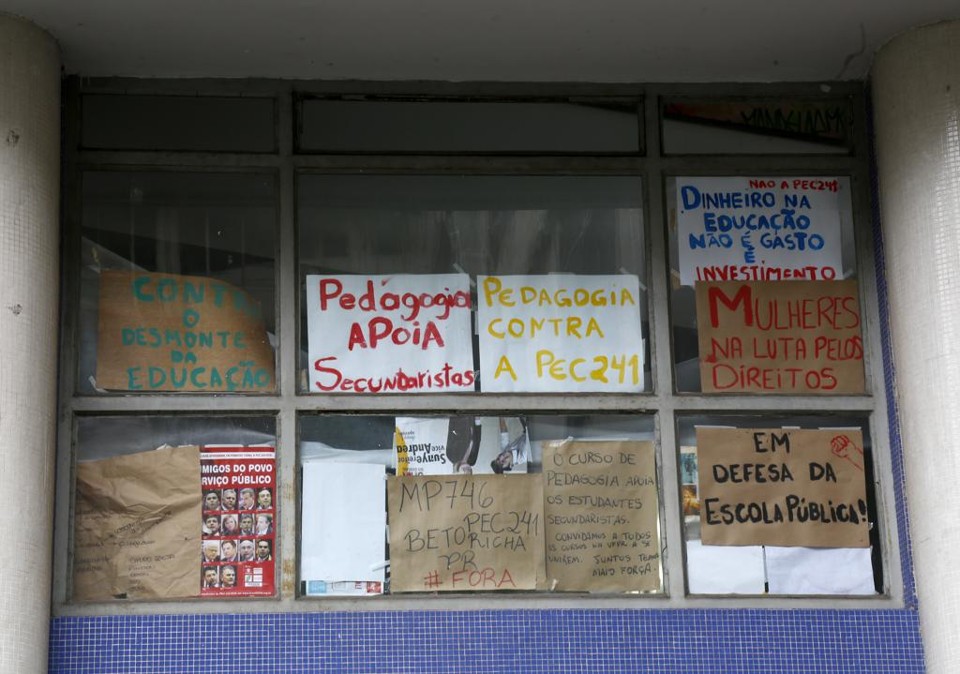 CONTR
O
DESMONTE
DA
EDUCAÇÃO
Pedagogia
APoiA
Secundaristas
PEDAGOGIA
CONTRA
A PEC241
NÃO A PEC241
DINHEIRO NA
EDUCAÇÃO
NÃO É GASTO
É
INVESTIMENTO
MULHERES
NA LUTA PELOS
DIREITOS
MIGOS DO POVO
RVIÇO PÚBLICO
Sunye
Andrea
vice
MP746
PEC241
BETO RICHA
PR
#FORA
O CURSO DE
PEDAGOGIA APOIA
OS ESTUDANTES
SECUNDARISTAS.
CONVIDAMOS A TODOS
OS CURSOS NA UFPR A SE
UNIREM. JUNTOS TEMOS
MAIS FORÇA.
EM
DEFESA DA
ESCOLA PÚBLICA!